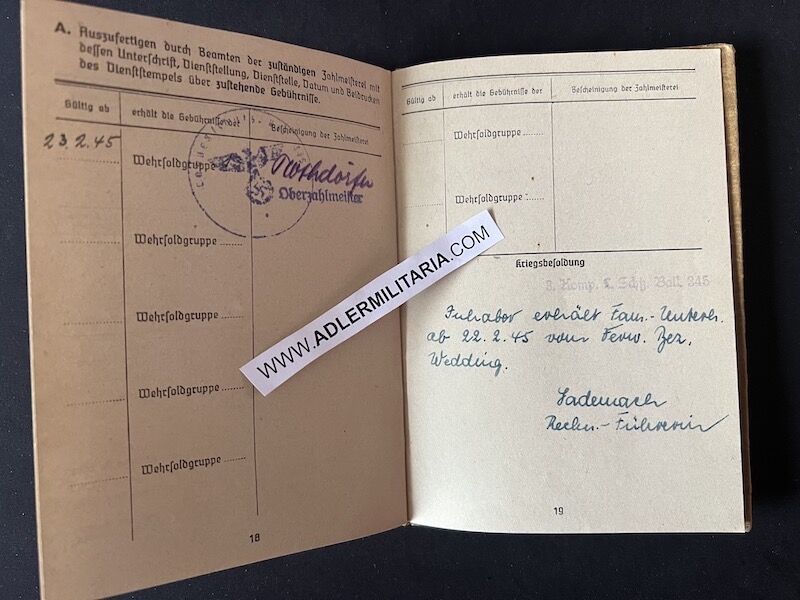 A. Auszufertigen durch Beamten der zuständigen Zahlmeisterei mit
dessen Unterschrift, Dienststellung, Dienststelle, Datum und Beidrucken
des Dienststempels über zustehende Gebührnisse.
Gültig ab
erhält die Gebührnisse der
Bescheinigung der Zahlmeisterei
23.2.45
Wehrsoldgruppe
Oberzahlmeister
Wehrsoldgruppe ........
Wehrsoldgruppe ........
Wehrsoldgruppe ........
Wehrsoldgruppe ........
18
WWW.ADLERMILITARIA.COM
Gültig ab
erhält die Gebührnisse der
Bescheinigung der Zahlmeisterei
Wehrsoldgruppe ......
Wehrsoldgruppe ......
Kriegsbesoldung
Komp. Batl. 245
Inhaber erhält Fam.-Unterh.
ab 22.2.45 vom Verw. Bez.
Wedding.
Lademach
Rechn.-Führerin
19